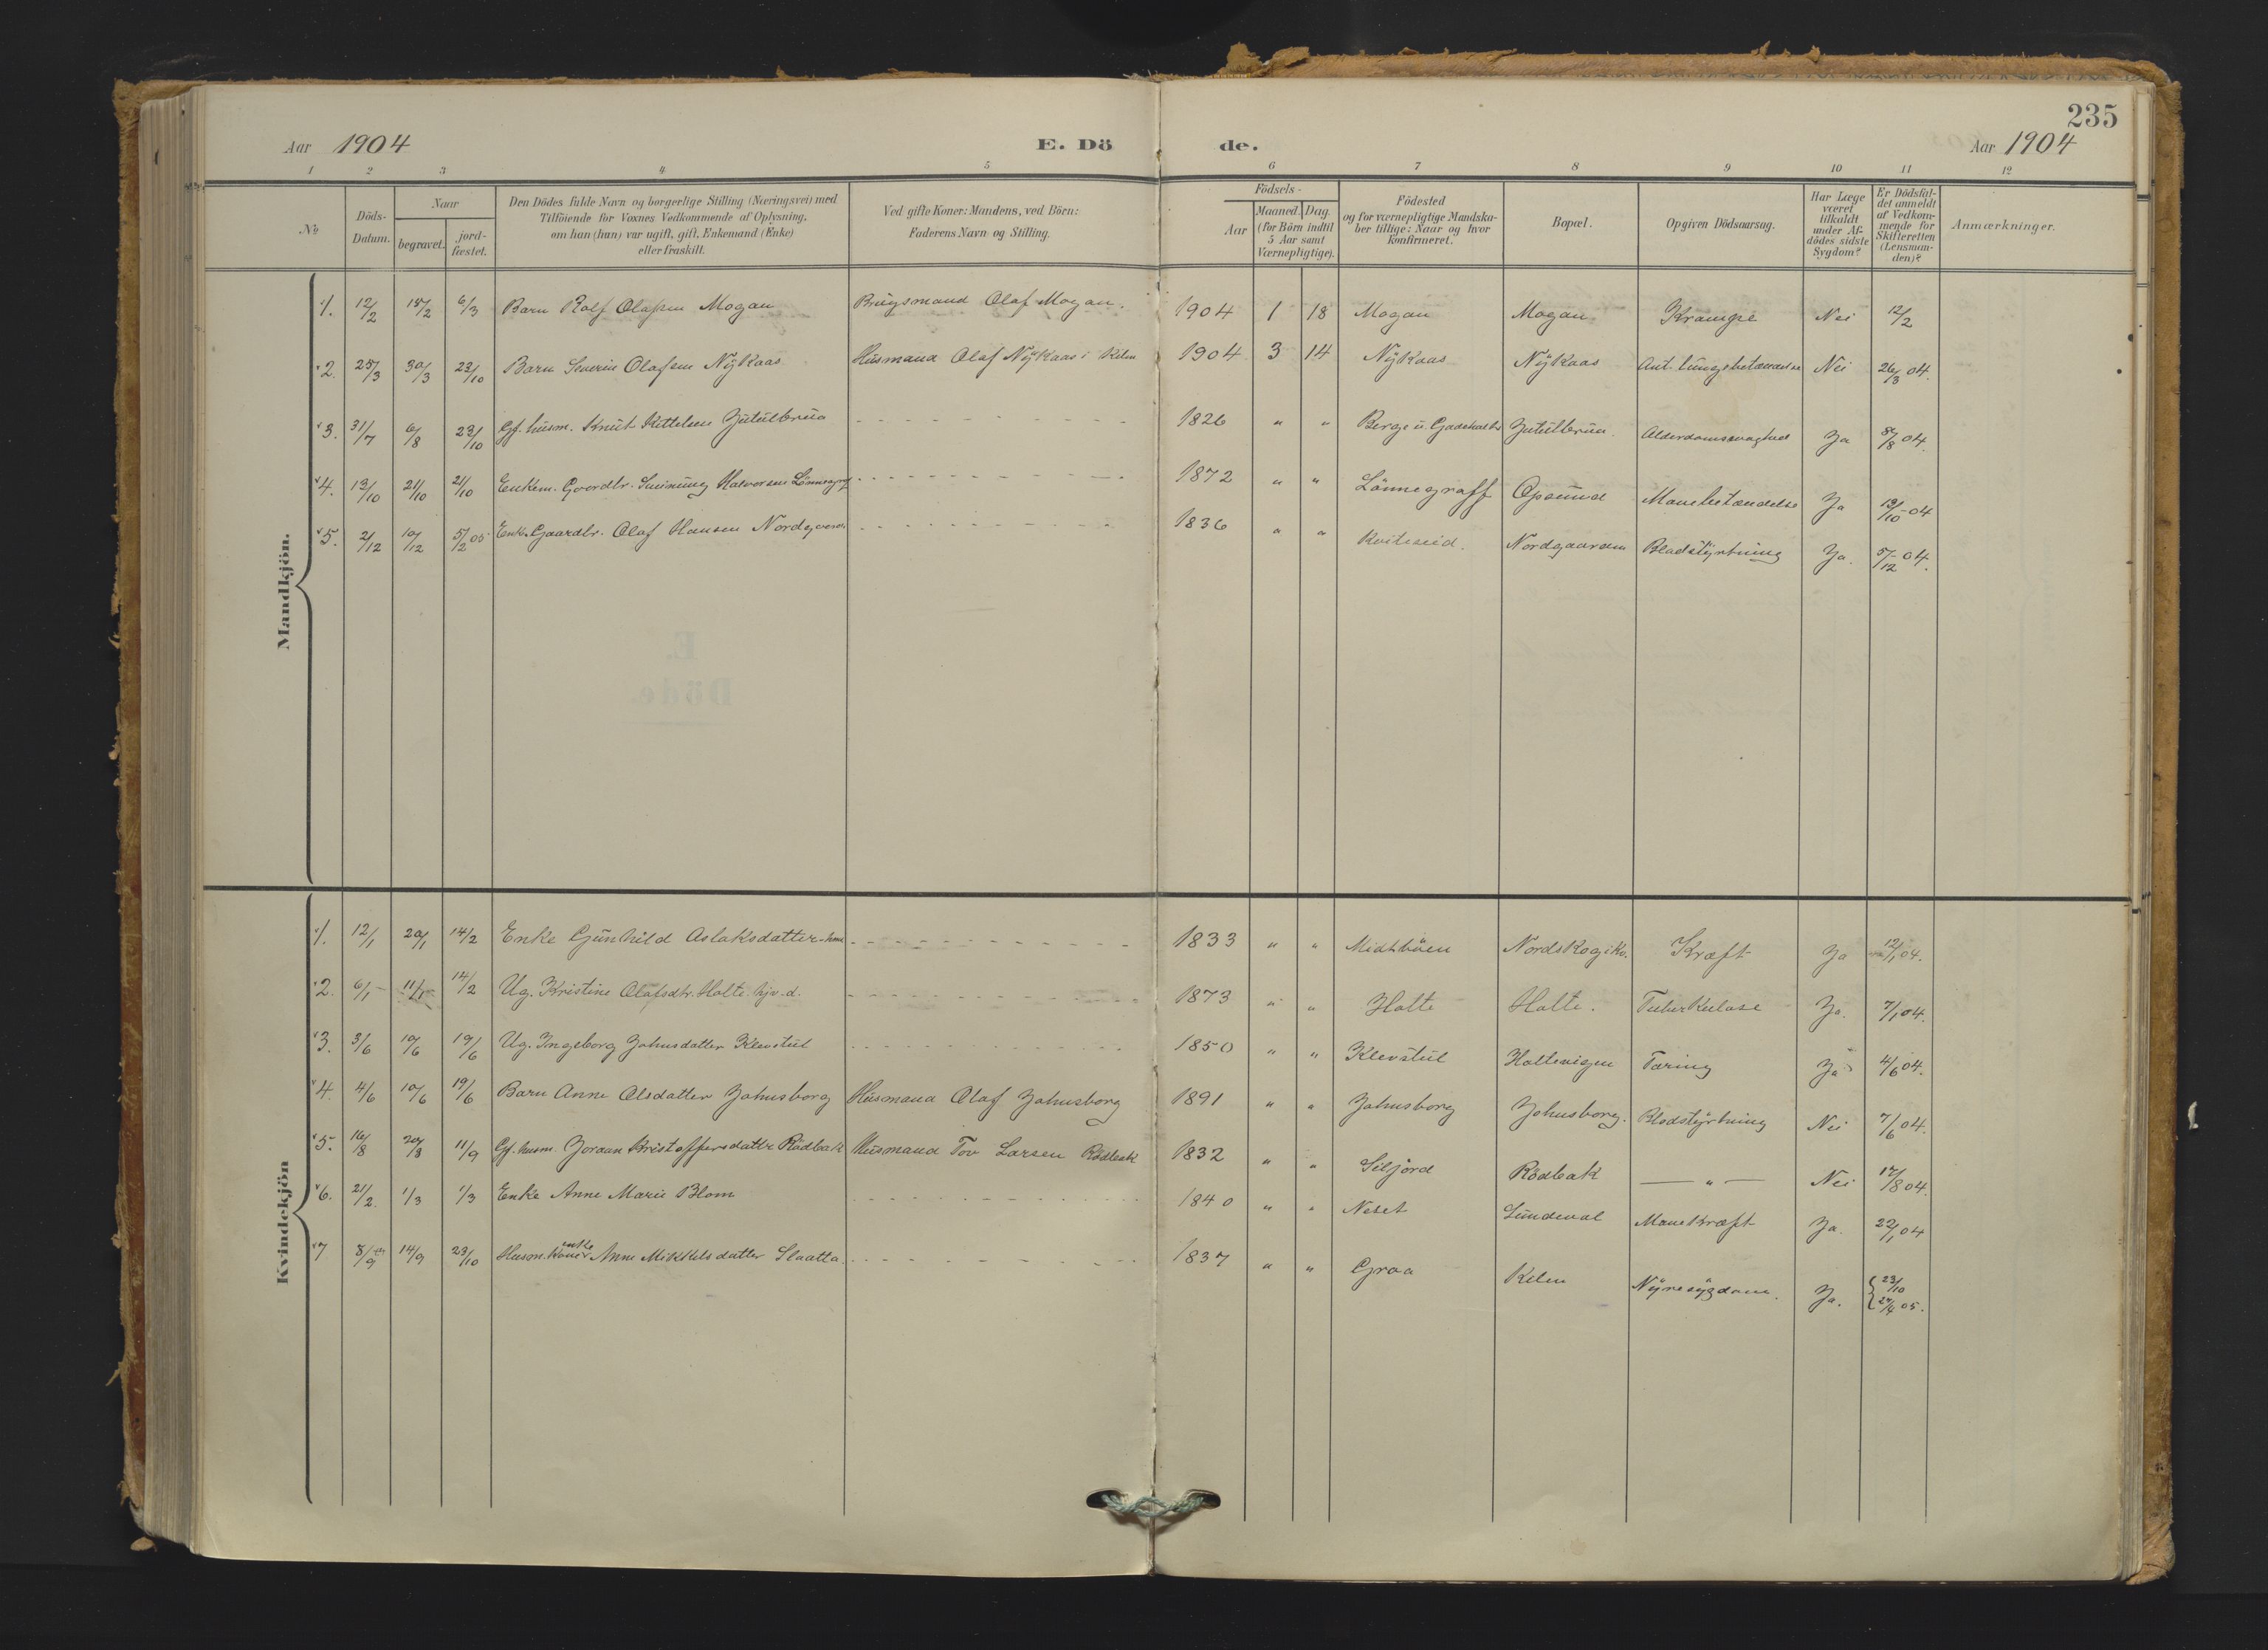 235
Aar 1904 E. Dö de. Aar 1904
1 2 3 4 5 6 7 8 9 10 11 12
No
Döds-Datum.
Naar
begravet.
jord-fæstet.
Den Dödes fulde Navn og borgerlige Stilling (Næringsvei) med
Tilföiende for Voxnes Vedkommende af Oplysning,
om han (hun) var ugift, gift, Enkemand (Enke)
eller fraskilt.
Ved gifte Koner: Mandens, ved Börn:
Faderens Navn og Stilling.
Födsels-
Aar
Maaned. Dag.
(for Börn indtil
5 Aar samt
Værnepligtige).
Födested
og for værnepligtige Mandska-
ber tillige: Naar og hvor
konfirmeret.
Bopæl.
Opgiven Dödsaarsag.
Har Læge
været
tilkaldt
under Af-
dödes sidste
Sygdom?
Er Dödsfal-
det anmeldt
af Vedkom-
mende for
Skifteretten
(Lensman-
den)?
Anmærkninger.
Mandkjön.
1. 12/2 18/2 6/3 Barn Rolf Olafsen Mogan Brugsmand Olaf Mogan. 1904 1 18 Mogan Mogan Krampe Nei 12/2
2. 25/3 30/3 23/10 Barn Severin Olafsen Nykaas Husmand Olaf Nykaas i Kilen 1904 3 14 Nykaas Nykaas Ant. lungebetændelse Nei 26/3 04.
3. 31/7 6/8 23/10 Gf. husm. Knut Kittelsen Jutulbrua 1826 " " Berge u. Jutulbrua. Alderdomssvaghed Ja 8/8 04.
4. 13/10 21/10 21/10 Enkem. Gaardbr. Halvorsen Lönnegraff 1872 " " Lönnegraff Opsund Mavebetændelse Ja 13/10 04
5. 2/12 10/12 5/2 05 Enkem. Gaardbr. Olaf Hansen Nordgaarden 1836 " " Kviteseid. Nordgaarden Blodstyrtning Ja. 5/12 04.
Kvindekjön
1. 12/1 20/1 14/2 Enke Gunhild Aslaksdatter 1833 " " Midtböen Nordskog i Kv. Kræft Ja 12/1 04.
2. 6/1 11/1 14/2 Ug. Kristine Olafsdtr. Holte. hjv-d. 1873 " " Holte Holte. Tuberkulose Ja. 7/1 04.
3. 3/6 10/6 19/6 Ug. Ingeborg Johnsdatter Klevstul 1850 " " Klevstul Holtevigen Tæring Ja 4/6 04.
4. 4/6 10/6 19/6 Barn Anne Olsdatter Johnsborg Husmand Olaf Johnsborg 1891 " " Johnsborg Johnsborg. Blodstyrtning Nei 7/6 04.
5. 16/8 20/8 11/9 Gf. husm. Joraan Kristoffersdatter Rödbak Husmand Tov Larsen Rödbak 1832 " " Siljord Rödbak — " — Nei 17/8 04.
6. 21/2. 1/3 1/3 Enke Anne Marie Blom 1840 " " Neset Lundeval Mavekræft Ja. 22/1 04
7 8/9 14/9 23/10 Husm. enke Anne Mikkelsdatter Slaatta. 1837 " " Graa Kilen Nyresygdom. Ja. 23/10 24/4 05.